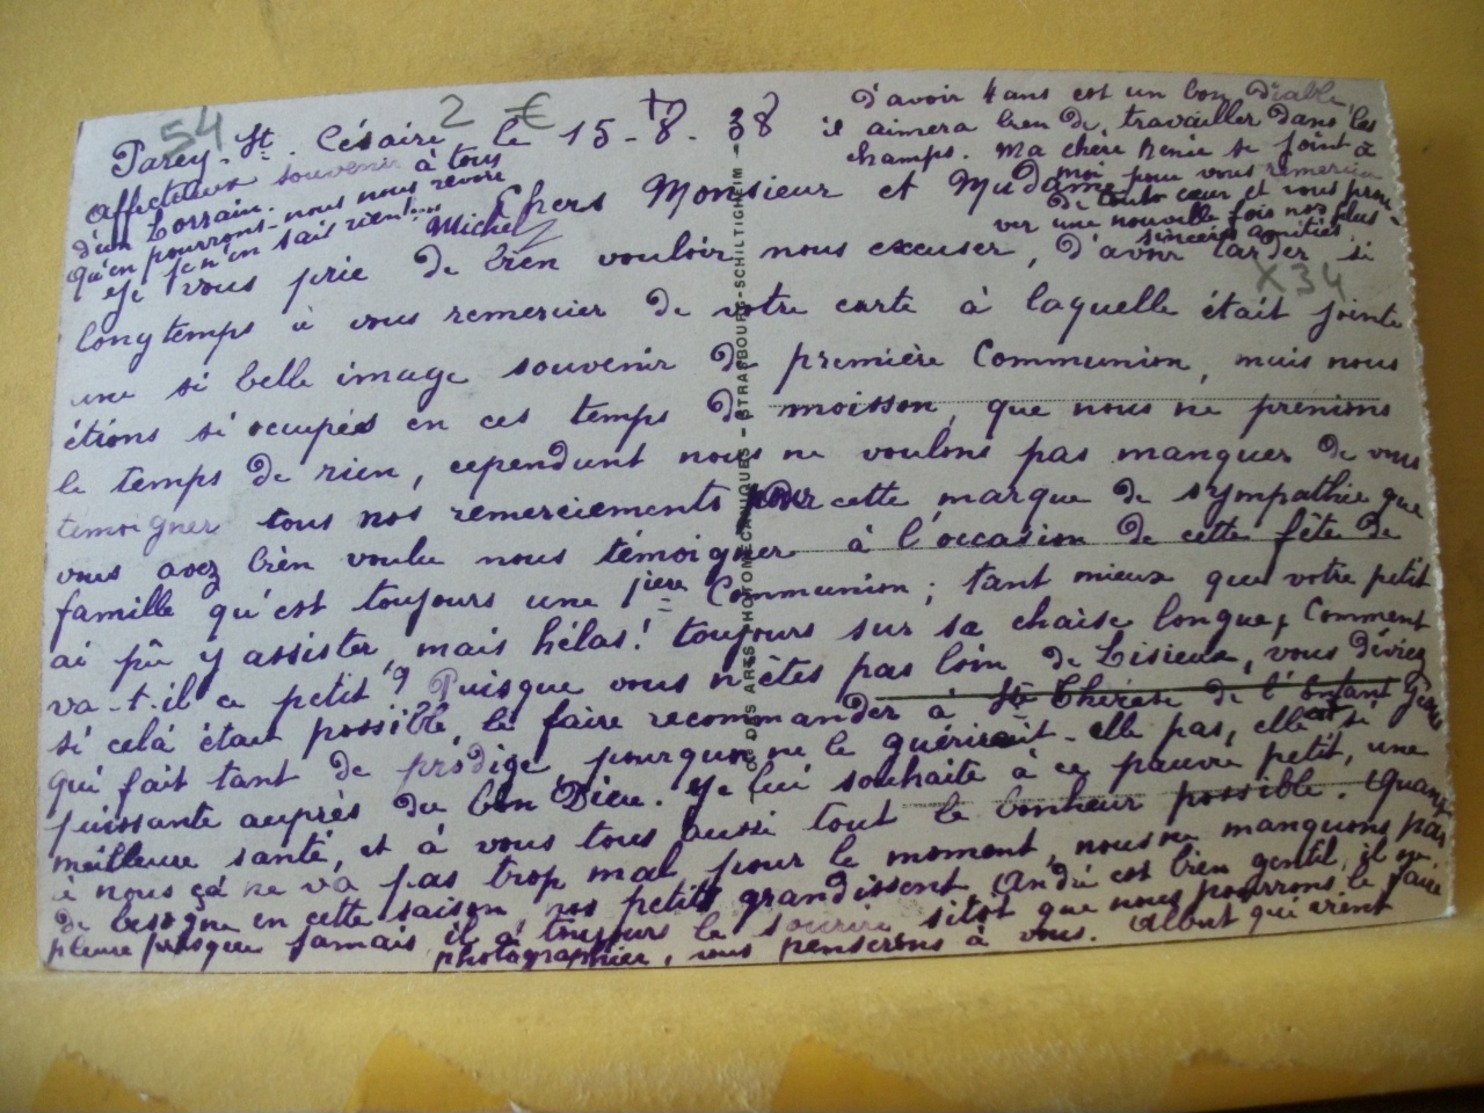 54 2 €
Parey-St. Césaire le 15-8-38
Chers Monsieur et Madame
Je vous prie de bien vouloir nous excuser, d'avoir tarder si
longtemps à vous remercier de votre carte à laquelle était jointe
une si belle image souvenir de première Communion, mais nous
étions si occupés en ces temps de moisson, que nous ne prenions
le temps de rien, cependant nous ne voulons pas manquer de vous
temoigner tous nos remerciements pour cette marque de sympathie que
vous avez bien voulu nous témoigner à l'occasion de cette fête de
famille qu'est toujours une 1ière Communion; tant mieux que votre petit
ai pû y assister, mais hélas! toujours sur sa chaise longue, Comment
va-t-il ce petit? Puisque vous n'êtes pas loin de Lisieux, vous devriez
si celà était possible, le faire recommander à Ste Thérèse de l'Enfant Jésus
qui fait tant de prodige pourquoi ne le guérirait-elle pas, elle est si
puissante auprès du bon Dieu. Je lui souhaite à ce pauvre petit, une
meilleure santé, et à vous tous aussi tout le bonheur possible. Quant
à nous çà ne va pas trop mal pour le moment, nous ne manquons pas
de besogne en cette saison, nos petits grandissent André est bien gentil, il ne
pleure presque jamais il a toujours le sourire sitôt que nous pourrons le faire
photographier, nous penserons à vous. Albert qui vient
d'avoir 4 ans est un bon Diable,
il aimera bien de travailler dans les
champs. Ma chère Renée se joint à
moi pour vous remercier
de tout cœur et vous prou-
ver une nouvelle fois nos plus
sincères amitiés.
Michel
Affectueux souvenir à tous
d'un Lorrain.
Qu'en pourrons-nous nous revoir
je n'en sait rien!...
X34
CIE DES ARTS PHOTOMÉCANIQUES - STRASBOURG-SCHILTIGHEIM